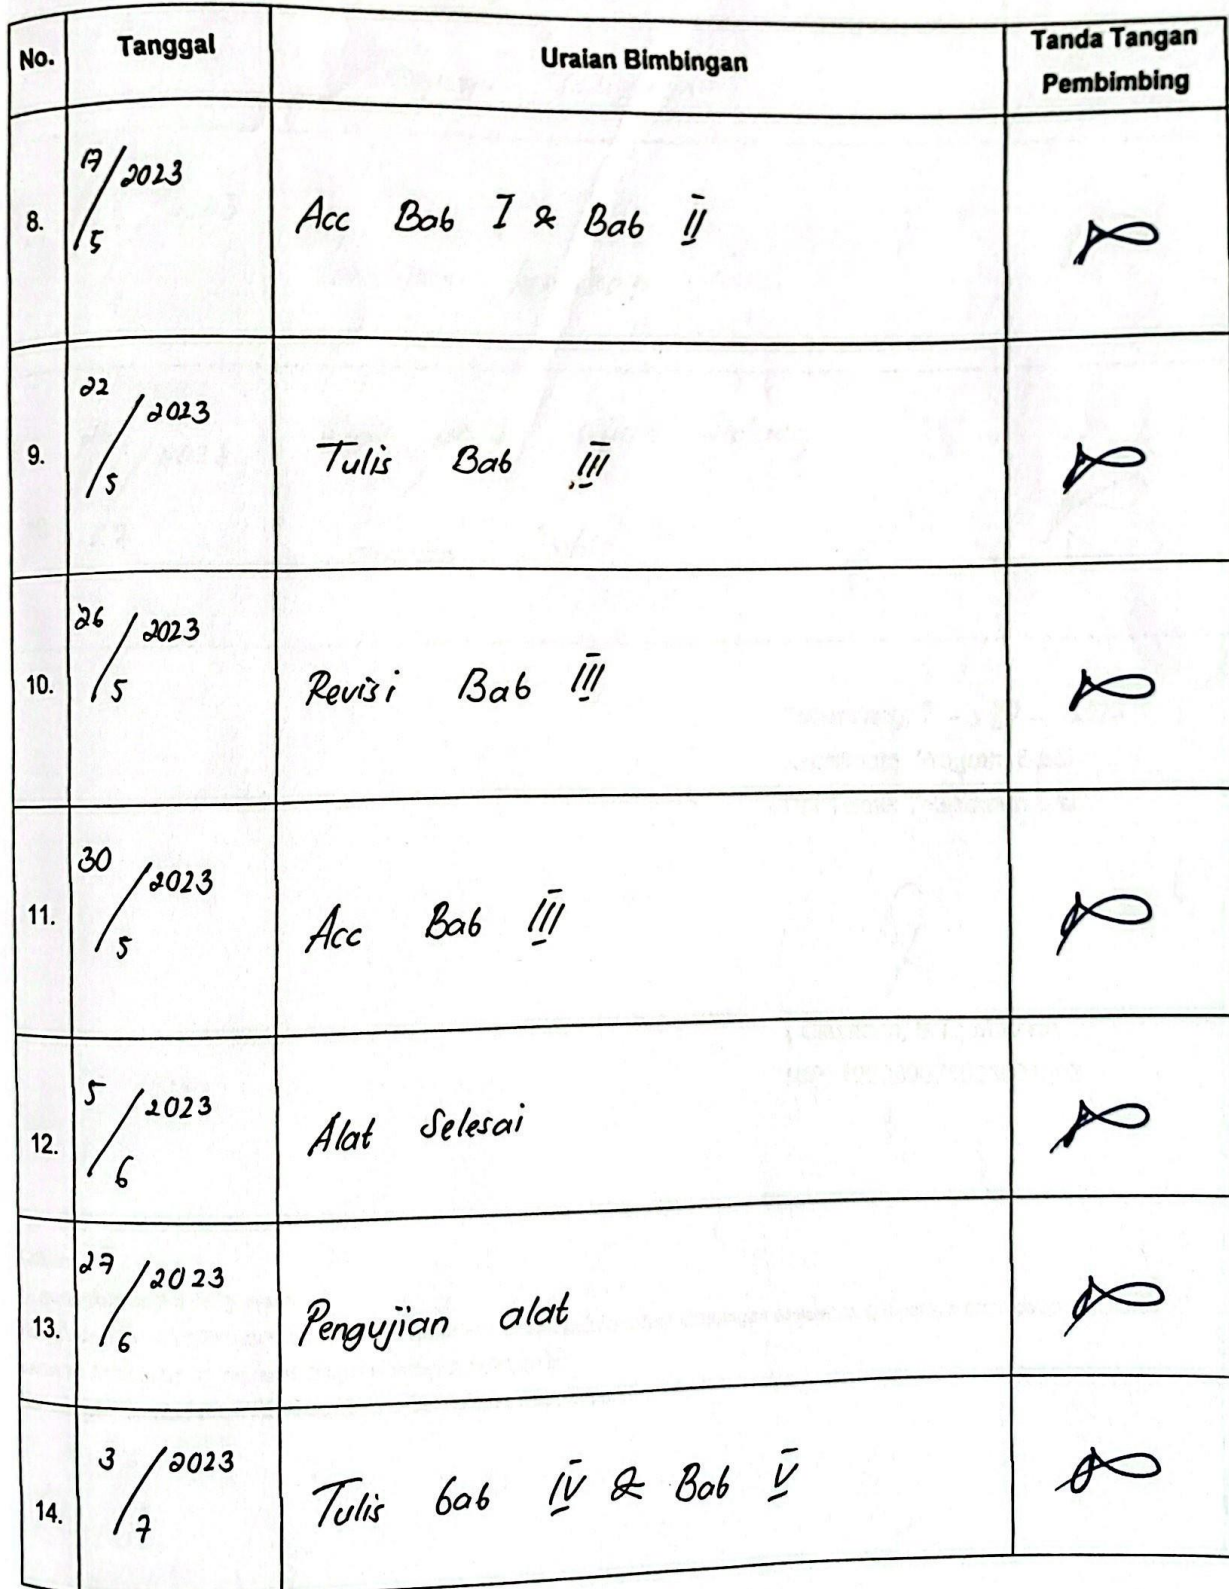 No. Tanggal Uraian Bimbingan Tanda Tangan Pembimbing
8. 17/5 2023 Acc Bab I & Bab II
9. 22/5 2023 Tulis Bab III
10. 26/5 2023 Revisi Bab III
11. 30/5 2023 Acc Bab III
12. 5/6 2023 Alat Selesai
13. 27/6 2023 Pengujian alat
14. 3/7 2023 Tulis bab IV & Bab V